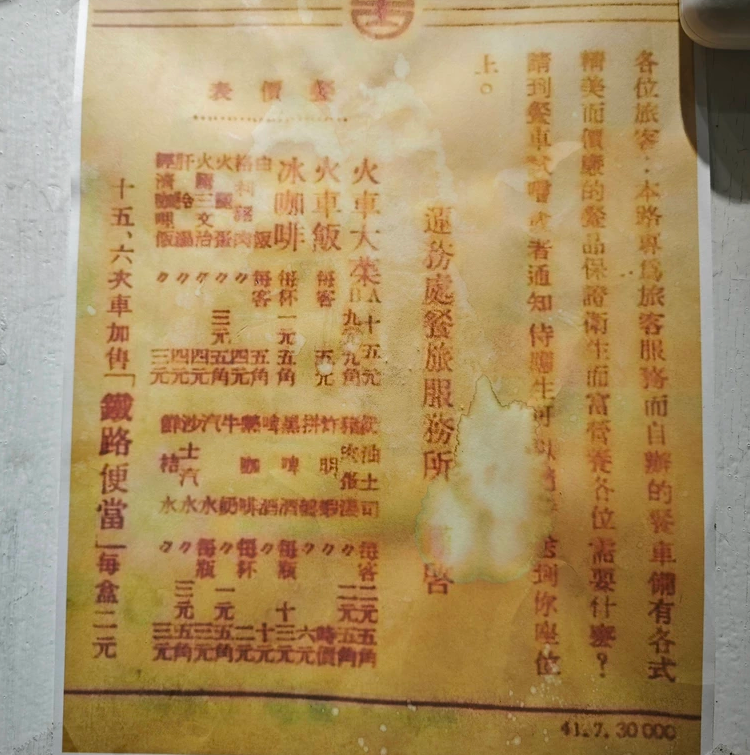 各位旅客：本路專為旅客服務而自辦的餐車備有各式
精美而價廉的餐品保證衛生而富營養各位需要什麼？
請到餐車試嚐或者通知侍應生可以送到你座位
上。
運務處餐旅服務所 謹啓
餐價表
火車大菜 A十五元 B九元九角
火車飯 每客 五元
冰咖啡 每杯一元五角
白飯 每客 五角
格利豬肉 〃 四元
火腿蛋 〃 三元五角
火腿三文治 〃 四元
湯 〃 四元
經濟咖喱飯 〃 三元
油土司 每客二元五角
豬肉蛋湯 〃 二元五角
炸明蝦 〃 時價
拼盤 〃 六元
黑啤酒 每瓶 十三元
啤酒 〃 十元
熱咖啡 每杯 二元
牛奶 〃 一元五角
汽水 每瓶 三元
沙士汽水 〃 三元五角
鮮桔水 〃 三元
十五、六次車加售「鐵路便當」每盒二元
41.7.30000